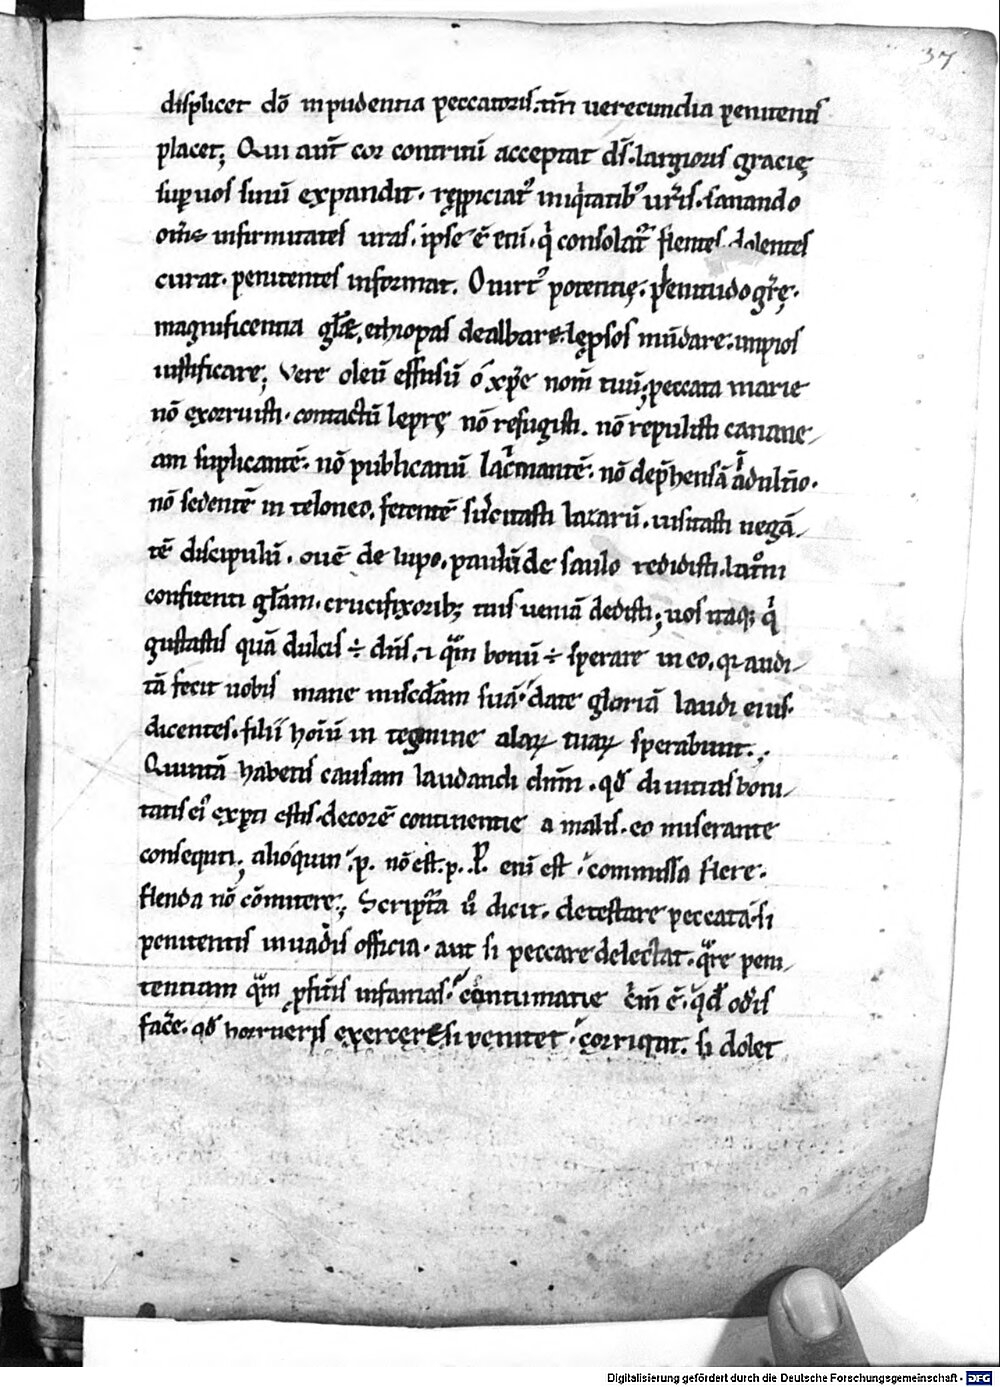 37
displicet dō inpudentia peccatoris. tm̄ uerecundia penitentis
placet; Qui aut̄ cor contritū acceptat ds̄. largioris gracię
sup uos sinū expandit. ręspiciat᷒ iniq̇tatib᷒ ur̄is. sanando
om̄s infirmitates uras. ipse ē eni. q̇ consolat᷒ flentes. dolentes
curat. penitentes informat. O uirt᷒ potentię. plenitudo gr̄ę.
magnificentia glǣ, ethiopas dealbare. lęprosos mūdare. impios
iustificare; Vere oleū effusū ó xp̄e nom̄ tuū; peccata marie
nō exorruisti. contactū leprę nō refugisti. nō repulisti canane-
am suplicantē. nō publicanū lac̓mantē. nō dep̄hensā ī adult̄io.
nō sedentē in teloneo. fetentē suscitasti lazarū. uisitasti negā-
tē discipulū. ouē de lupo. paulū de saulo redidisti. latroni
confitenti gl̄am. crucifixorib; tuis ueniā dedisti; uos itaq; q̇
gustastis quā dulcis ÷ dn̄s. ⁊ qm̄ bonū ÷ sperare in eo. q audi-
tā fecit uobis mane misc̄dam suā. date gloriā laudi eius.
dicentes. filii hoīū in tegmine alaꝝ tuaꝝ sperabunt.
Quintā habetis causam laudandi dnm̄. qd̄ diuitias boni-
tatis ei᷒ exp̱ti estis. decorē continentie a malis. eo miserante
consequti; alioquin .p. nō est .p. P̄. eni est commissa flere.
flenda nō cōmitere; Scriptr̄a ū dicit. detestare peccata. si
penitentis inuadis officia. aut si peccare delectat. qr̄e peni-
tentiam qm̄ pfit̄is infamas. contumatie eni ē. qd̄ odis
fac̄e. qd̄ horrueris exercere. si penitet corrigat. si dolet
Digitalisierung gefördert durch die Deutsche Forschungsgemeinschaft - DFG